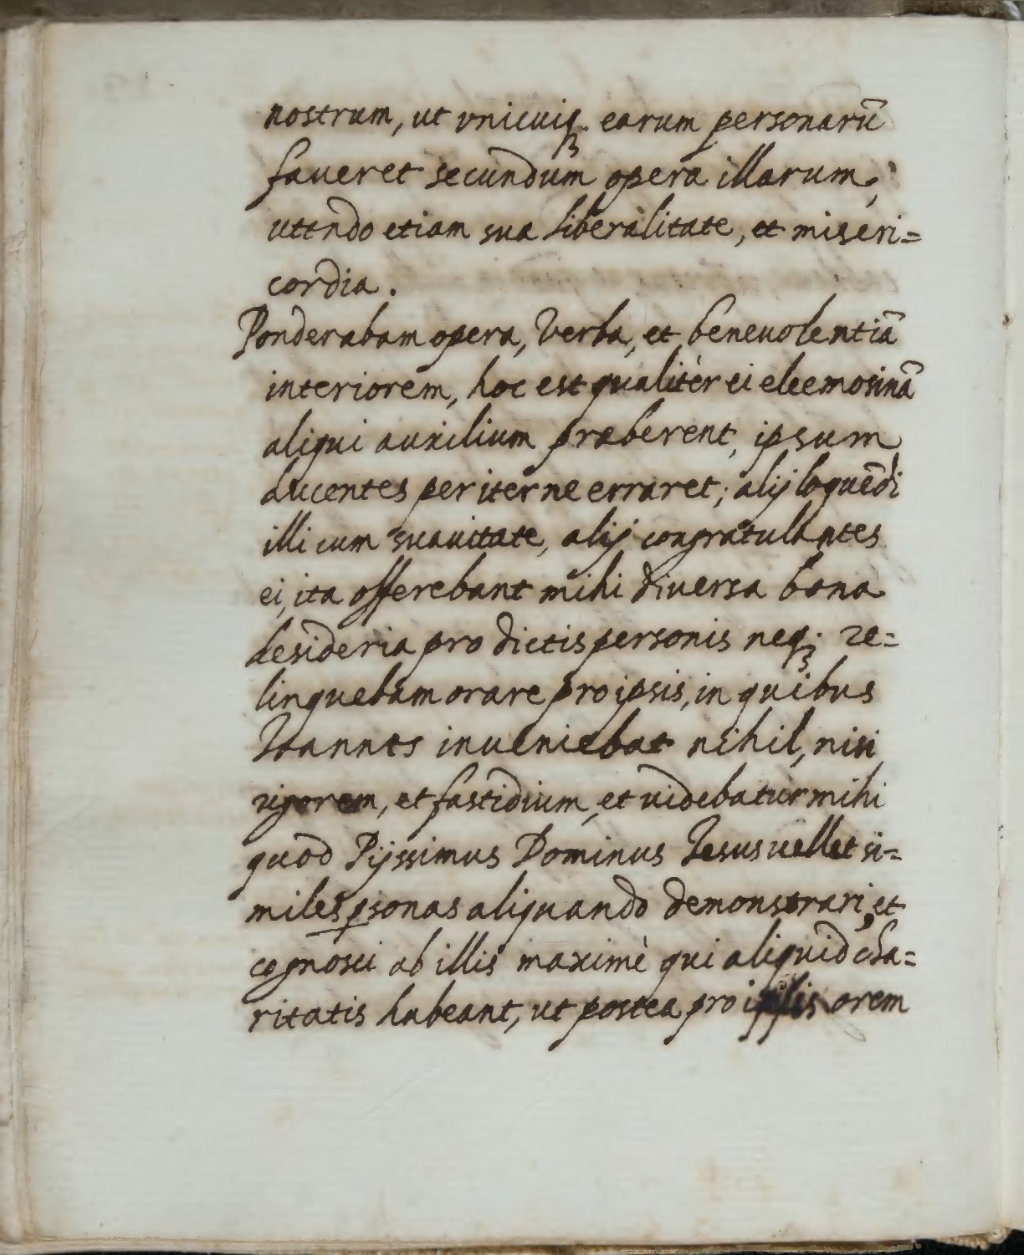 nostrum, ut vnicuiq. earum personarũ
faueret secundum opera illarum,
utendo etiam sua liberalitate, et miseri=
cordia.
Ponderabam opera, Verba, et beneuolentiã
interiorem, hoc est qualitèr ei eleemosinã
aliqui auxilium præberent, ipsum
ducentes per iter ne erraret; alij loquẽdi
illi cum suauitate, alij congratulantes
ei, ita offerebant mihi diuersa bona
desideria pro dictis personis neq; re=
linquebam orare pro ipsis, in quibus
Ioannes inueniebat nihil, nisi
rigorem, et fastidium, et uidebatur mihi
quod Pijssimus Dominus Iesus uellet si=
miles psonas aliquando demonstrari, et
cognosci ab illis maximè qui aliquid cha=
ritatis habeant, ut postea pro ipsis orem